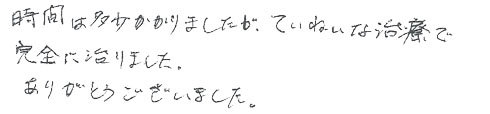 時間は多少かかりましたが、ていねいな治療で
完全に治りました。
ありがとうございました。